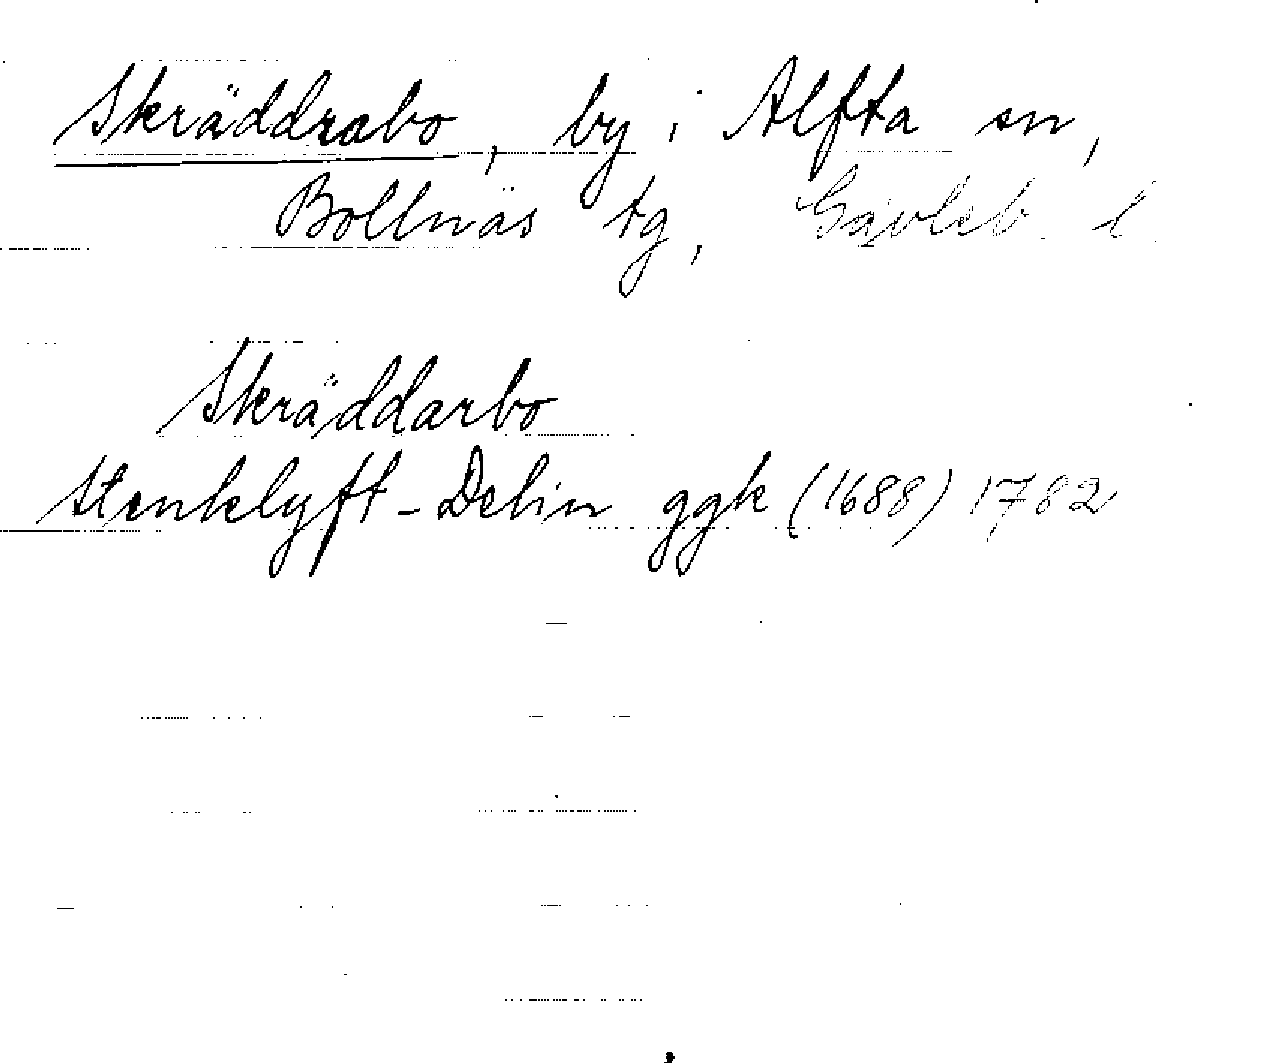 Skräddrabo, by i Alfta sn,
Bollnäs tg, Gävleb. l.
Skräddarbo
Stenklyft-Delin ggk (1688) 1782